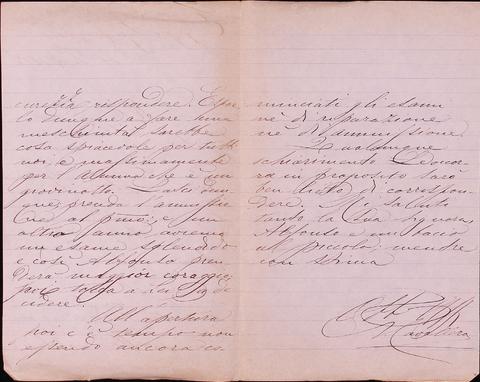 respondere.
dunque a fare una
meschinità sarebbe
cosa spiacevole per tutti
noi e massimamente
per l'alunno che è un
giovinotto.
que prenda l'ammissio
ne al primo; e un
altro anno avremo
un esame splendido
e così Alfonso pren
derà maggior coraggio,
cidere.
All'apertura
poi c'è tempo non
essendo ancora co
minciati gli esami
nè di riparazione
nè di ammissione.
Qualunque
schiarimento
ra in proposito sarò
ben lieto di corrispon
dere. Mi saluti
tanto la Sua Signora,
Alfonso e un bacio
al piccolo, mentre
con stima